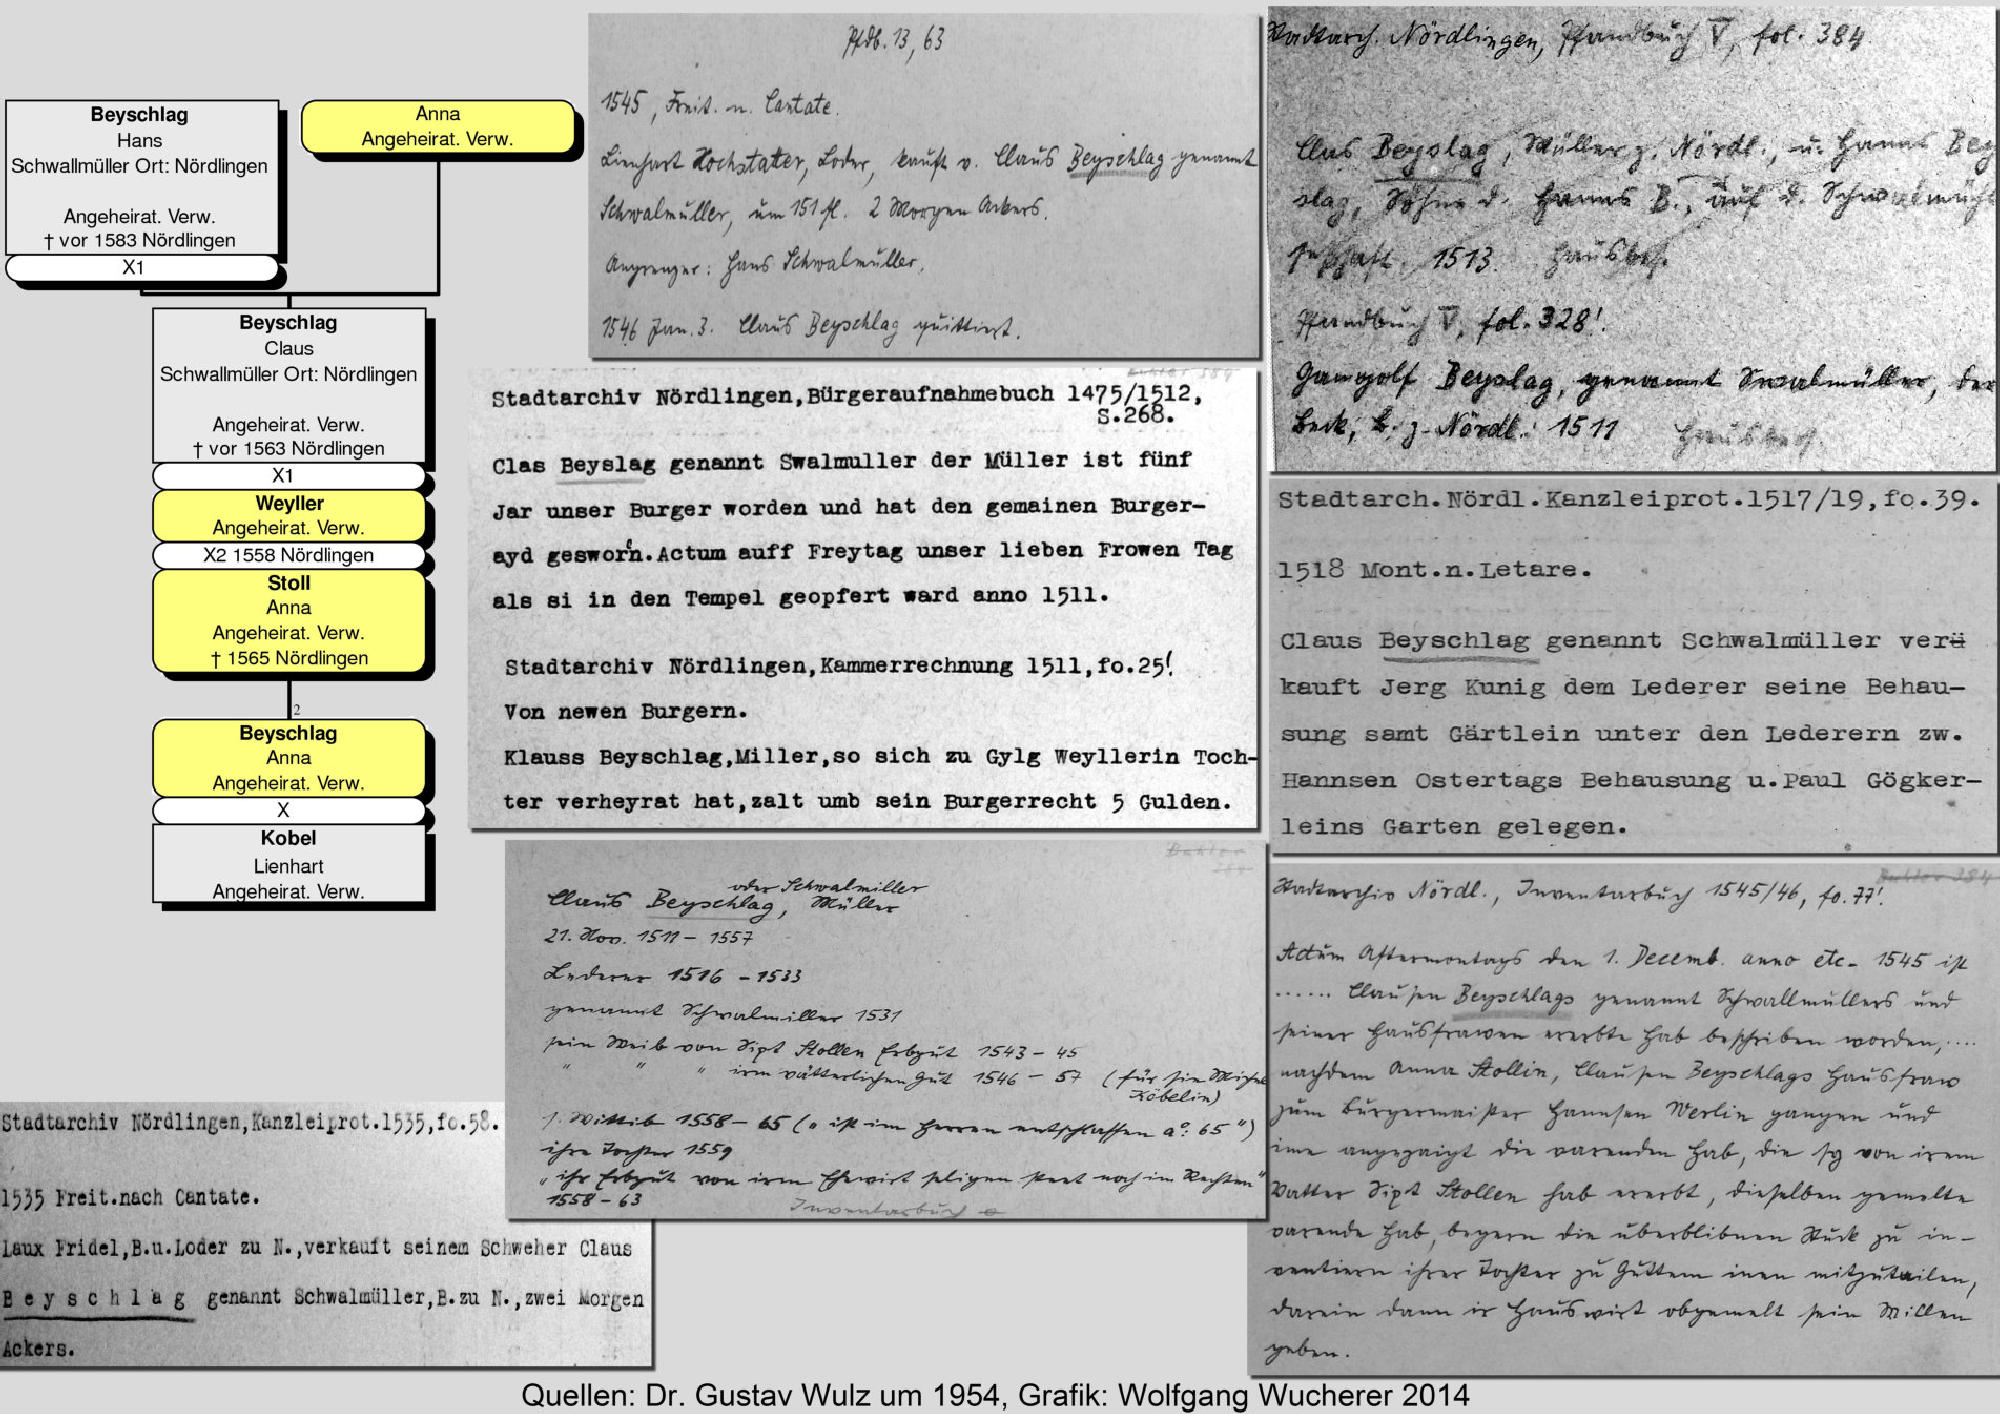 Beyschlag
Hans
Schwallmüller Ort: Nördlingen
Angeheirat. Verw.
† vor 1583 Nördlingen
X1
Anna
Angeheirat. Verw.
Beyschlag
Claus
Schwallmüller Ort: Nördlingen
Angeheirat. Verw.
† vor 1563 Nördlingen
X1
Weyller
Angeheirat. Verw.
X2 1558 Nördlingen
Stoll
Anna
Angeheirat. Verw.
† 1565 Nördlingen
2
Beyschlag
Anna
Angeheirat. Verw.
X
Kobel
Lienhart
Angeheirat. Verw.
Pfdb. 13, 63
1545, Freit. n. Cantate.
Lienhart Hochstater, Loder, kauft v. Claus Beyschlag genannt
Schwalmüller, um 151 fl. 2 Morgen Ackers.
Angrenzer: Hans Schwalmüller.
1546 Jan. 3. Claus Beyschlag quittiert.
Stadtarchiv Nördlingen,Bürgeraufnahmebuch 1475/1512,
S.268.
Clas Beyslag genannt Swalmuller der Müller ist fünf
Jar unser Burger worden und hat den gemainen Burger-
ayd gesworn.Actum auff Freytag unser lieben Frowen Tag
als si in den Tempel geopfert ward anno 1511.
Stadtarchiv Nördlingen,Kammerrechnung 1511,fo.25!
Von newen Burgern.
Klauss Beyschlag,Miller,so sich zu Gylg Weyllerin Toch-
ter verheyrat hat,zalt umb sein Burgerrecht 5 Gulden.
oder Schwalmiller
Claus Beyschlag, Müller
21. Nov. 1511 - 1557
Lederer 1516 - 1533
genannt Schwalmiller 1531
sein Weib von Sixt Stollen Erbgut 1543 - 45
" " " irm vätterlichen Gut 1546 - 57 (für sie Michel
Köbelin)
s. Wittib 1558 - 65 ("ist im Herren entschlaffen a°: 65")
ihre Tochter 1559
"ihr Erbgut von irm Ehewirt seligen steet noch im Rechten"
1558 - 63
Inventarbuch
Stadtarchiv Nördlingen,Kanzleiprot.1535,fo.58.
1535 Freit.nach Cantate.
Laux Fridel,B.u.Loder zu N.,verkauft seinem Schweher Claus
Beyschlag genannt Schwalmüller,B.zu N.,zwei Morgen
Ackers.
Stadtarch. Nördlingen, Pfandbuch V, fol. 384
Clas Beyslag, Müller z. Nördl., u. Hanns Bey
slag, Söhne d. Hanns B., auf d. Schwalmühl
seßhaft. 1513. Hausbes.
Pfandbuch V, fol. 328!
Gangolf Beyslag, genannt Swalmüller, der
Beck, B. z. Nördl. 1511
Stadtarch.Nördl.Kanzleiprot.1517/19,fo.39.
1518 Mont.n.Letare.
Claus Beyschlag genannt Schwalmüller ver
kauft Jerg Kunig dem Lederer seine Behau-
sung samt Gärtlein unter den Lederern zw.
Hannsen Ostertags Behausung u.Paul Gögker-
leins Garten gelegen.
Stadtarchiv Nördl., Inventarbuch 1545/46, fo. 77!
Actum Aftermontags den 1. Decemb. anno etc. 1545 ist
...... Clausen Beyschlags genannt Schwallmüllers und
seiner Hausfrawen ererbte Hab beschriben worden,....
nachdem Anna Stollin, Clausen Beyschlags Hausfraw
zum Burgermaister Hannsen Werlin gangen und
ime angezaigt die varenden Hab, die sy von irem
Vatter Sixt Stollen hab ererbt, dieselben gemelte
varende Hab, begern die überblibnen Stuck zu in-
ventiern ihrer Tochter zu Guttem inen mitzutailen,
darein dann ir Hauswirt obgemelt sein Willen
geben.
Quellen: Dr. Gustav Wulz um 1954, Grafik: Wolfgang Wucherer 2014